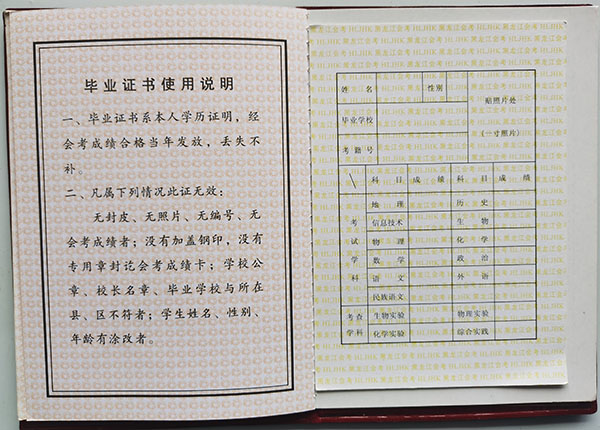 毕业证书使用说明
一、毕业证书系本人学历证明，经
会考成绩合格当年发放，丢失不
补。
二、凡属下列情况此证无效：
无封皮、无照片、无编号、无
会考成绩者；没有加盖钢印，没有
专用章封讫会考成绩卡；学校公
章、校长名章、毕业学校与所在
县、区不符者；学生姓名、性别、
年龄有涂改者。
黑龙江会考 HLJHK 黑龙江会考 HLJHK 黑龙江会考
姓 名 性别 贴照片处
毕业学校 (一寸照片)
考籍号
科 目 成 绩 科 目 成 绩
地 理 历 史
考 信息技术 生 物
试 物 理 化 学
学 数 学 政 治
科 语 文 外 语
民族语文
考查 生物实验 物理实验
学科 化学实验 综合实践